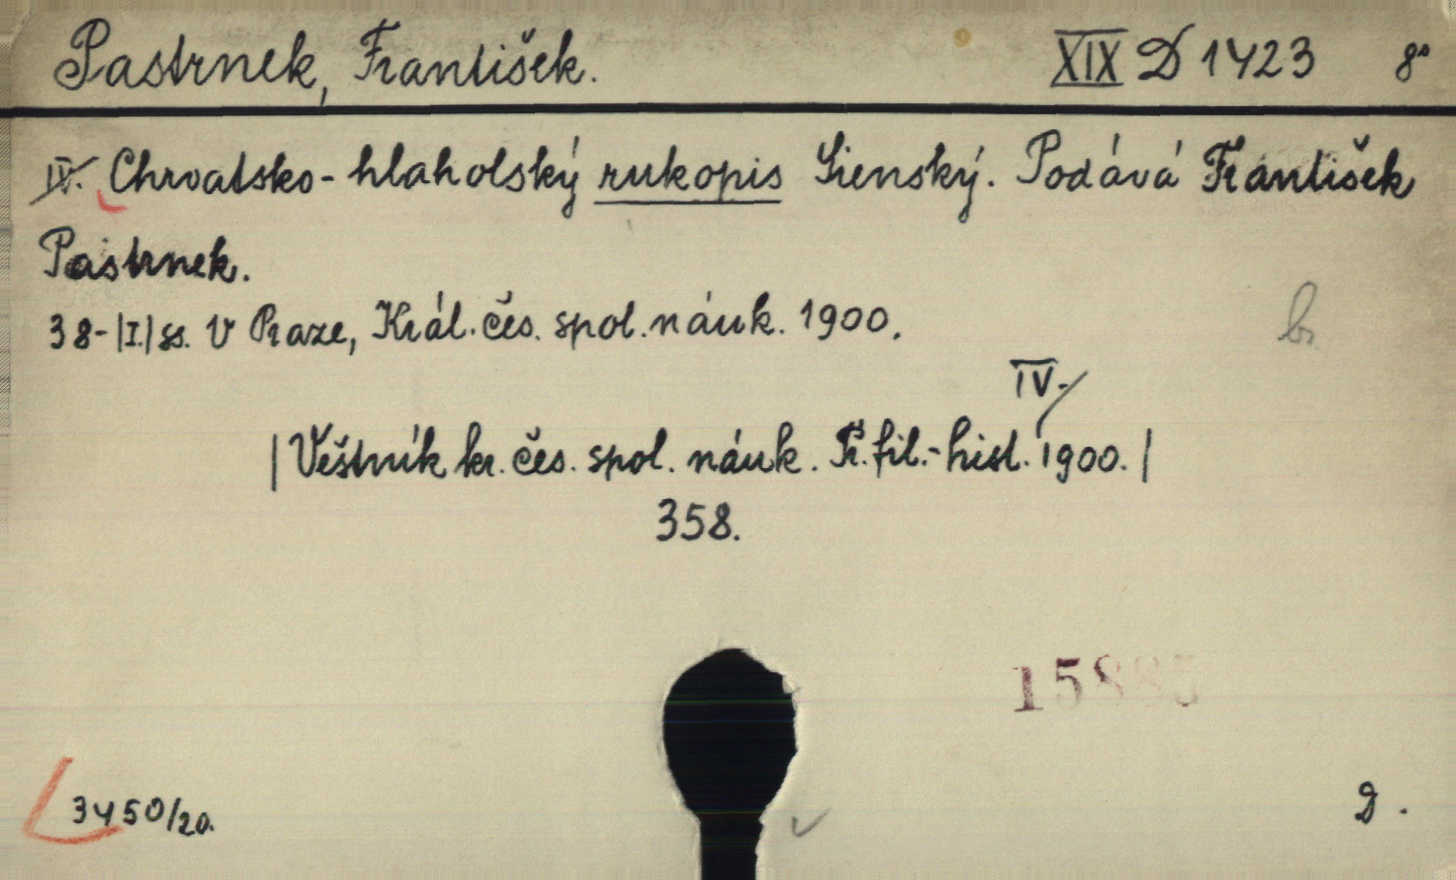 Pastrnek, František. XIX D 1423 8°
IV. Chrvatsko-hlaholský rukopis Sienský. Podává František
Pastrnek.
38-|I.| ss. V Praze, Král. čes. spol. náuk. 1900.
IV.
|Věstník kr. čes. spol. náuk. Tř. fil.-hist. 1900.|
358.
3450/20.